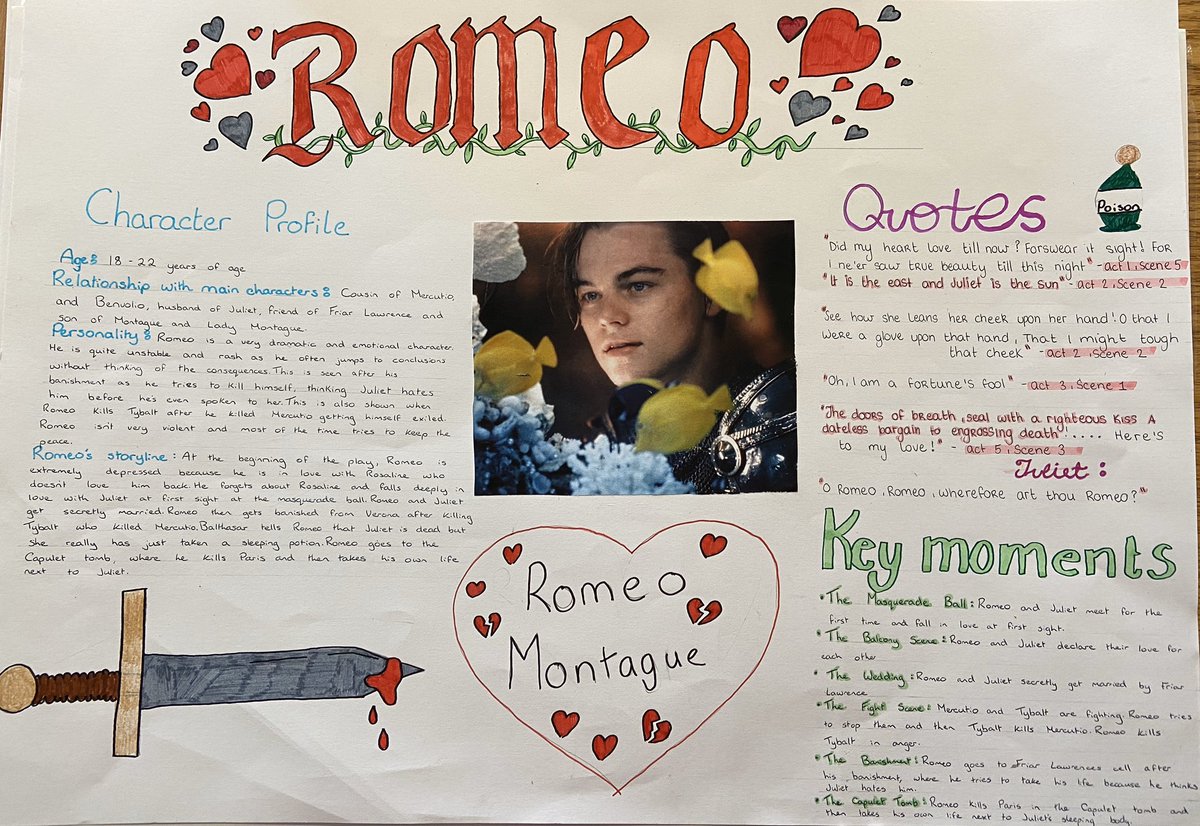 Romeo
Character Profile
Age: 18-22 years of age
Relationship with main characters: Cousin of Mercutio,
and Benvolio, husband of Juliet, friend of Friar Lawrence and
son of Montague and Lady Montague.
Personality: Romeo is a very dramatic and emotional character.
He is quite unstable and rash as he often jumps to conclusions
without thinking of the consequences. This is seen after his
banishment as he tries to kill himself, thinking Juliet hates
him before he's even spoken to her. This is also shown when
Romeo kills Tybalt after he killed Mercutio getting himself exiled.
Romeo isn't very violent and most of the time tries to keep the
peace.
Romeo's storyline: At the beginning of the play, Romeo is
extremely depressed because he is in love with Rosaline who
doesnt love him back. He forgets about Rosaline and falls deeply in
love with Juliet at first sight at the masquerade ball. Romeo and Juliet
get secretly married. Romeo then gets banished from Verona after killing
Tybalt who killed Mercutio. Balthasar tells Romeo that Juliet is dead but
she really has just taken a sleeping potion. Romeo goes to the
Capulet tomb, where he kills Paris and then takes his own life
next to Juliet.
Romeo
Montague
Poison
Quotes
"Did my heart love till now? Forswear it sight! For
I ne'er saw true beauty till this night" - act 1, scene 5
"It is the east and Juliet is the sun" - act 2, scene 2
"See how she leans her cheek upon her hand! O that I
were a glove upon that hand, That I might tough
that cheek" - act 2, scene 2
"Oh, I am a fortune's fool" - act 3, scene 1
"The doors of breath, seal with a righteous kiss A
dateless bargain to engrossing death"!.... Here's
to my love!" act 5, scene 3
Juliet:
"O Romeo, Romeo, wherefore art thou Romeo?"
Key moments
• The Masquerade Ball: Romeo and Juliet meet for the
first time and fall in love at first sight.
• The Balcony Scene: Romeo and Juliet declare their love for
each othe
• The Wedding: Romeo and Juliet secretly get married by Friar
Lawrence
• The Fight Scene: Mercutio and Tybalt are fighting. Romeo tries
to stop them and then Tybalt kills Mercutio. Romeo kills
Tybalt in anger.
• The Banishment: Romeo goes to Friar Lawrences cell after
his banishment, where he tries to take his life because he thinks
Juliet hates him.
• The Capulet Tomb: Romeo kills Paris in the Capulet tomb and
then takes his own life next to Juliet's sleeping body.